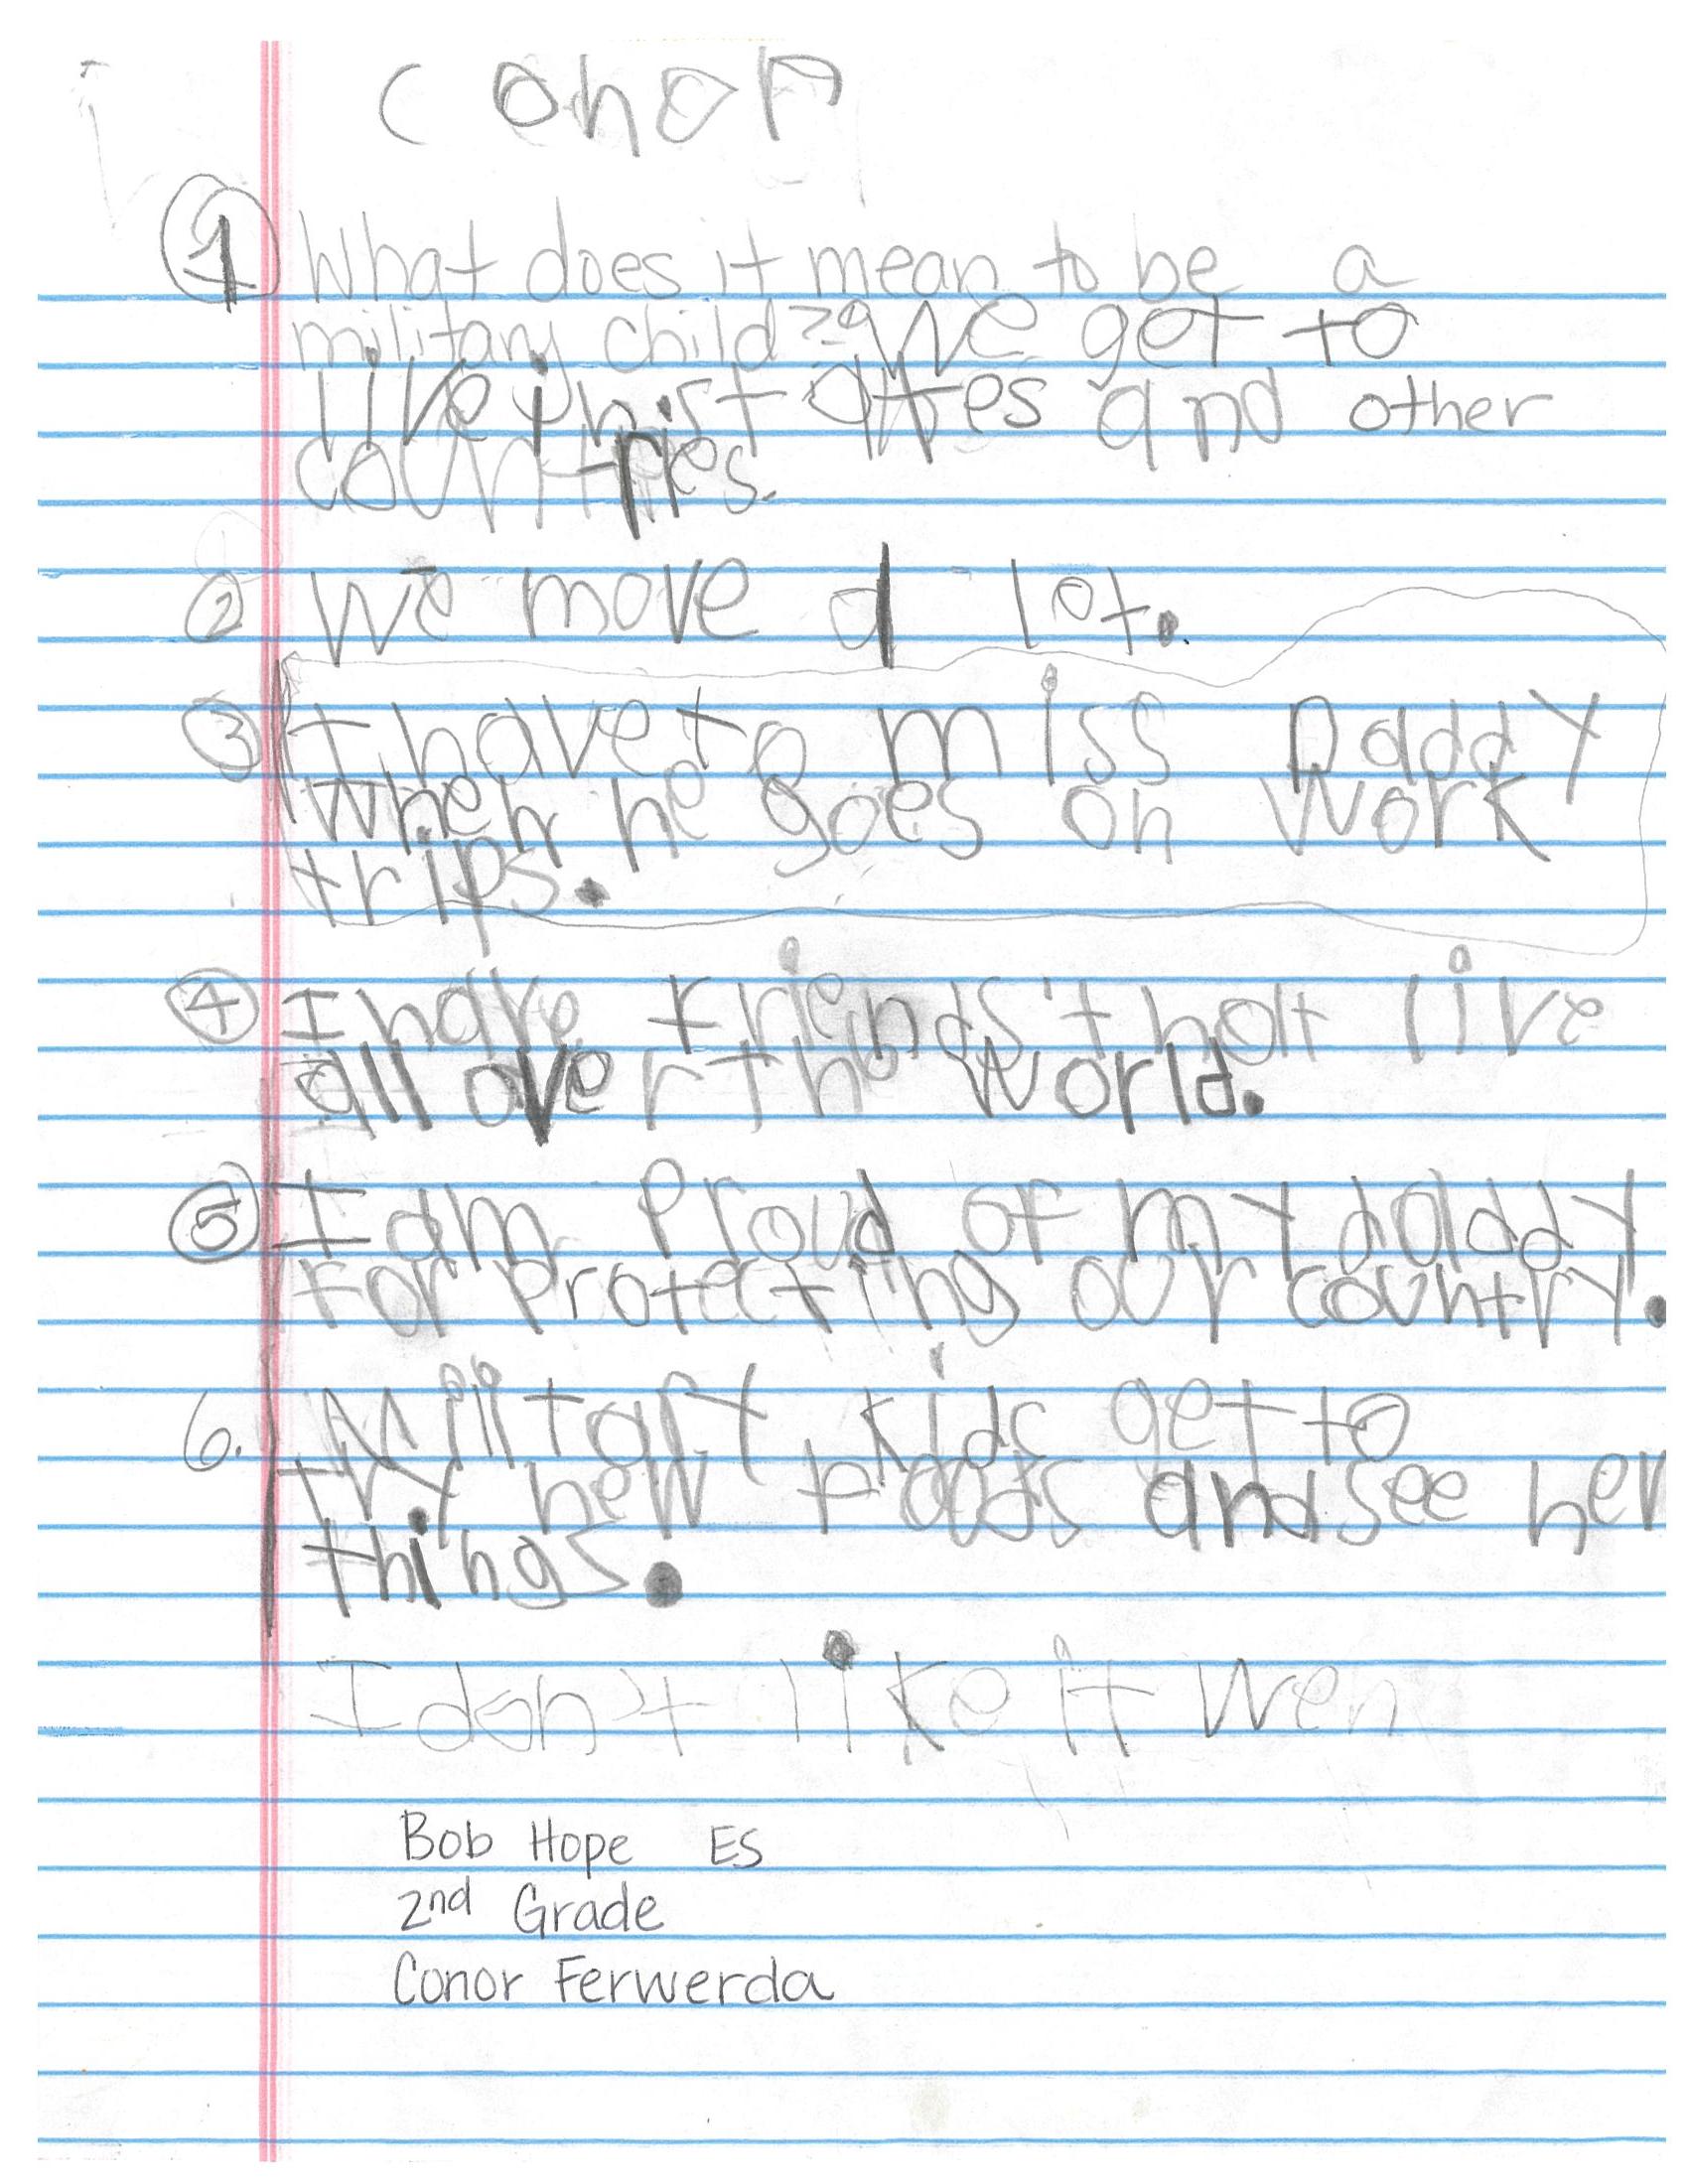 Conor
1 What does it mean to be a
military child? We get to
live in states and other
countries.
2 We move a lot.
3 I have to miss Daddy
when he goes on work
trips.
4 I have friends that live
all over the world.
5 I am Proud of my daddy
For Protecting our country.
6. Military kids get to
try new foods and see new
things.
I don't like it wen
Bob Hope ES
2nd Grade
Conor Ferwerda